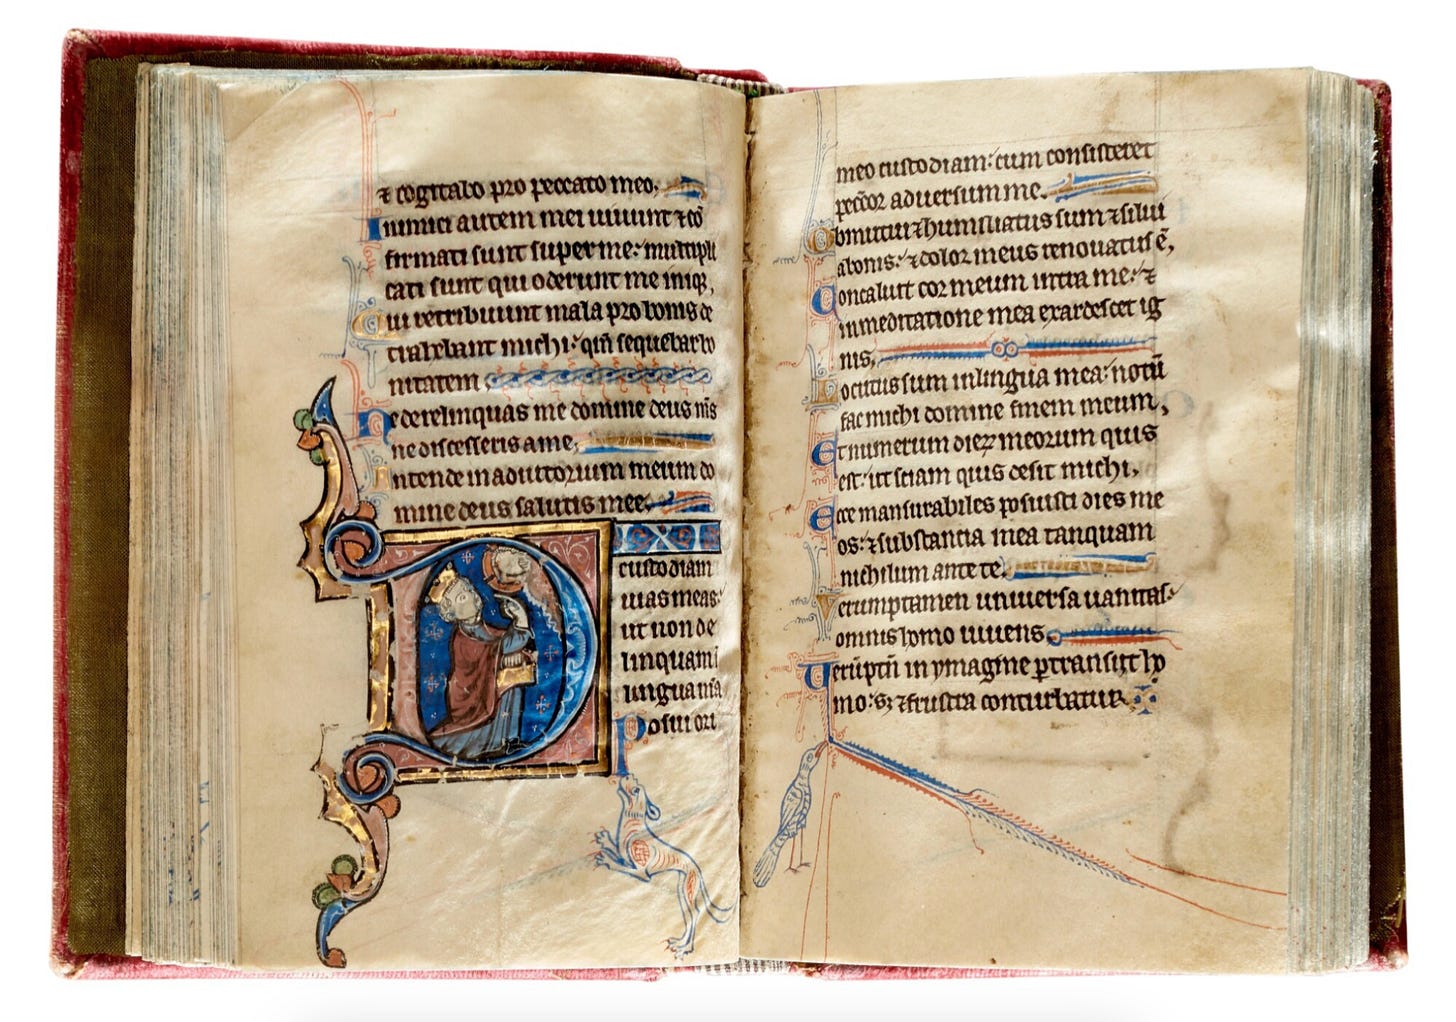 ⁊ cogitabo pro peccato meo.
Inimici autem mei uiuunt ⁊ cō
firmati sunt super me: multipli
cati sunt qui oderunt me iniq,
Qui retribuunt mala pro bonis de
trahebant michi: qm̄ sequebar bo
nitatem
Ne derelinquas me domine deus m̄s
ne discesseris a me,
Intende in adiutorium meum do
mine deus salutis mee.
DIXI
custodiam
uias meas:
ut non de
linquam ī
lingua mā
Posui ori
meo custodiam: cum consisteret
pecc̄or aduersum me.
Obmutui ⁊ humiliatus sum ⁊ silui
a bonis: ⁊ dolor meus renouatus ē,
Concaluit cor meum intra me: ⁊
in meditatione mea exardescet ig
nis,
Locutus sum in lingua mea: notū
fac michi domine finem meum,
Et numerum dieꝝ meorum quis
est: ut sciam quis desit michi,
Ecce mansurabiles posuisti dies me
os: ⁊ substantia mea tanquam
nichilum ante te.
Verumptamen uniuersa uanitas:
omnis homo uiuens.
Verūptn̄ in ymagine ꝑtransit ho
mo: sꝫ ⁊ frustra conturbatur.